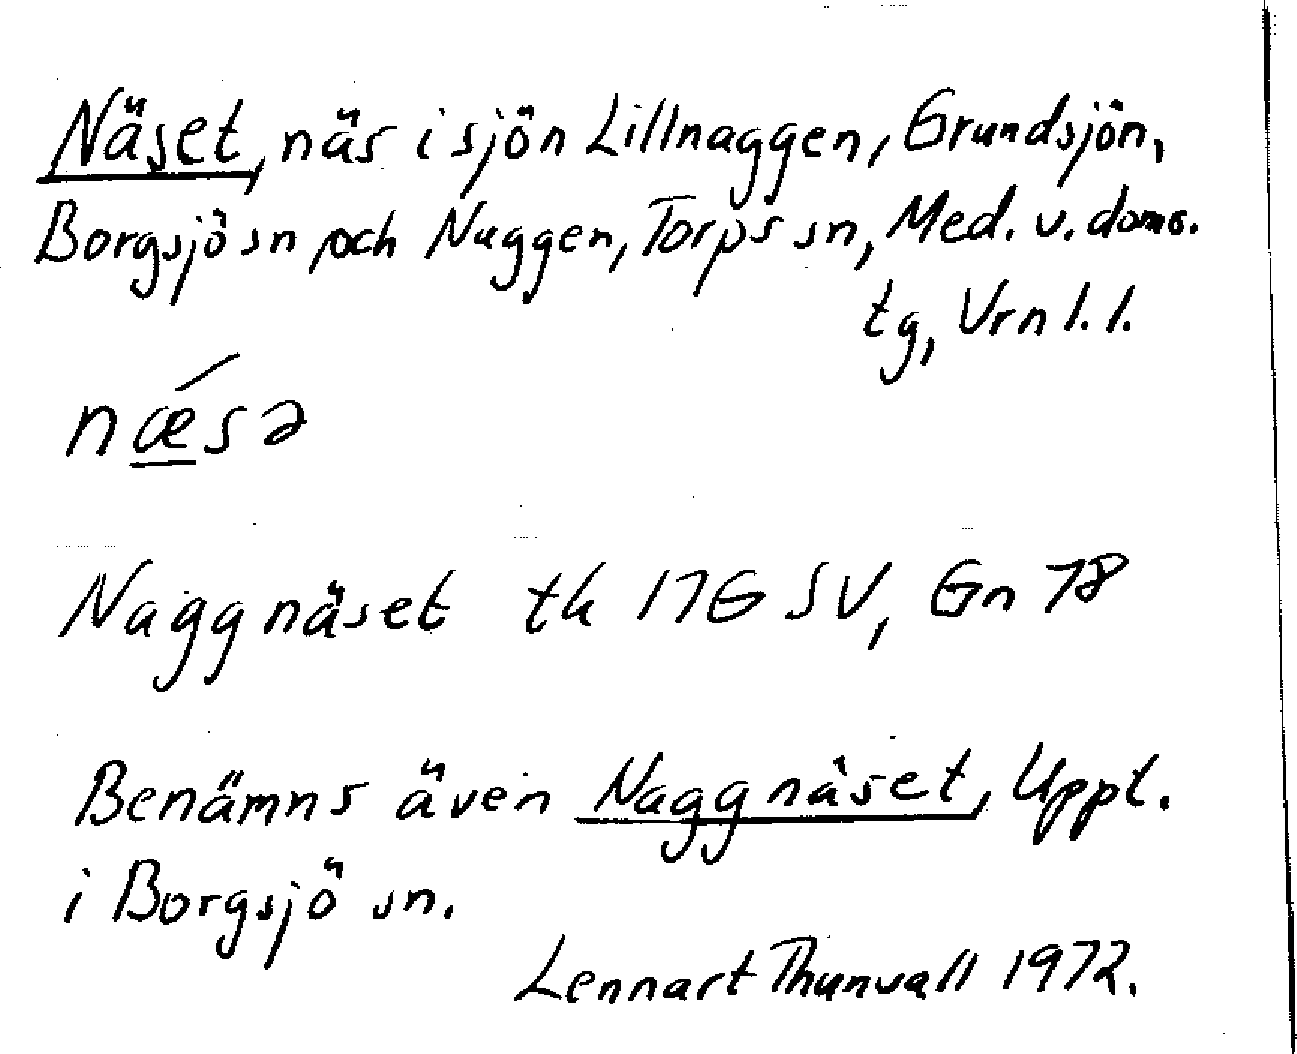 Näset, näs i sjön Lillnaggen, Grundsjön,
Borgsjö sn och Nuggen, Torps sn, Med. v. doms.
tg, Vrn l. l.
nǽsə
Naggnäset tk 17G SV, Gn 78
Benämns även Naggnäset, Uppt.
i Borgsjö sn.
Lennart Thunvall 1972.